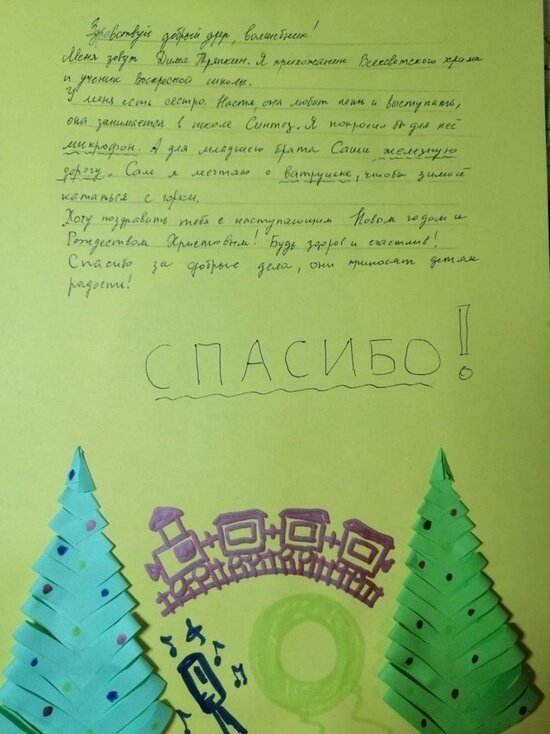 Здравствуй добрый друг, волшебник!
Меня зовут Дима Тряпкин. Я прихожанин Всехсвятского храма
и ученик Воскресной школы.
У меня есть сестра Настя, она любит петь и выступать,
она занимается в школе Синтез. Я попросил бы для неё
микрофон. А для младшего брата Саши железную
дорогу. Сам я мечтаю о ватрушке, чтобы зимой
кататься с горки.
Хочу поздравить тебя с наступающим Новым годом и
Рождеством Христовым! Будь здоров и счастлив!
Спасибо за добрые дела, они приносят детям
радость!
СПАСИБО!